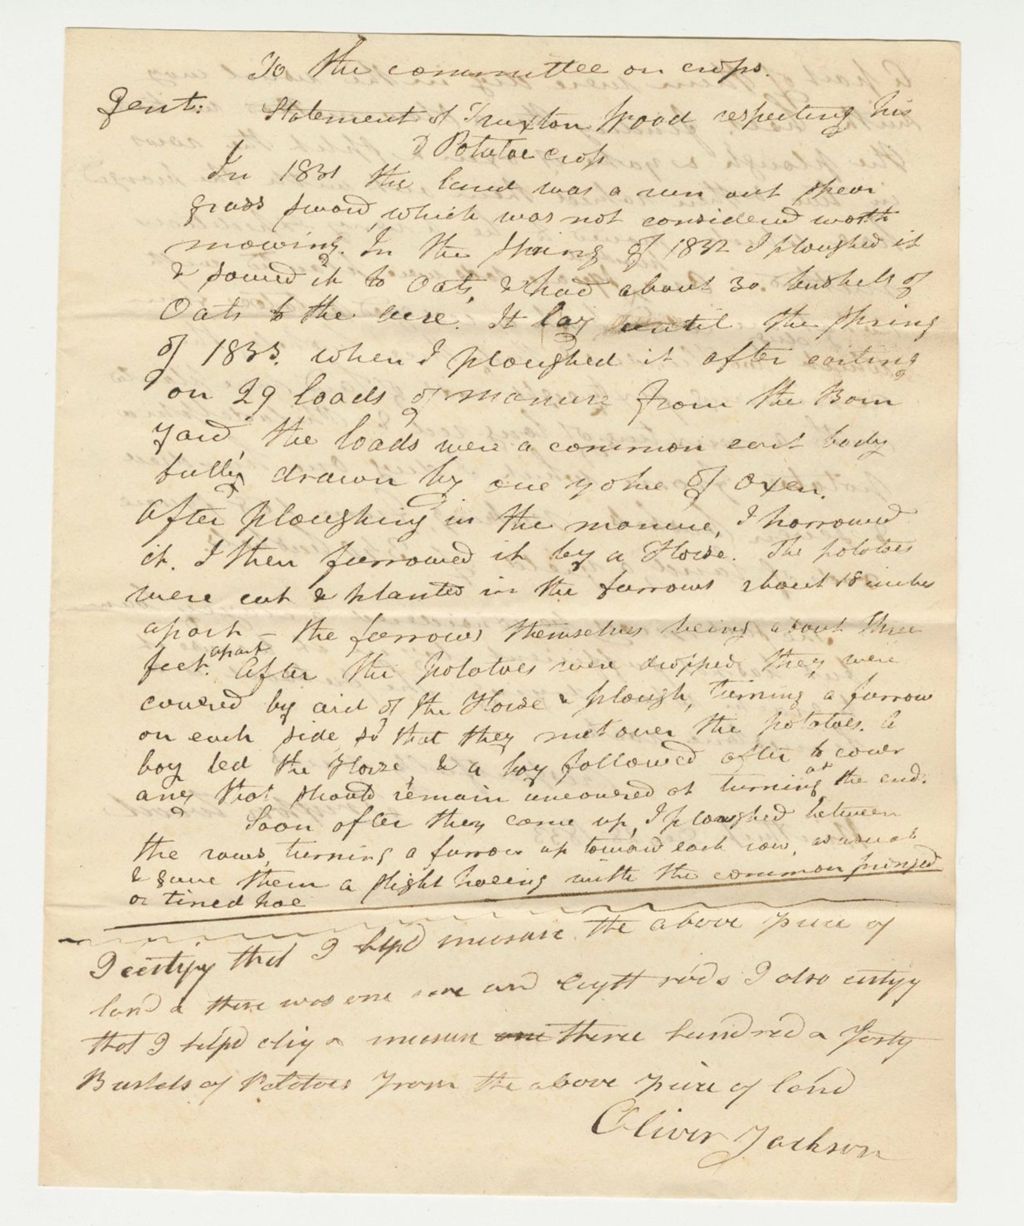 To the committee on crops.
Gent: Statement of Truxton Wood respecting his
Potatoe crop
In 1831 the land was a run out spear
grass sward, which was not considered worth
mowing. In the Spring of 1832 I ploughed it
& sowed it to Oats, & had about 30 bushels of
Oats to the acre. It lay until the Spring
of 1833. when I ploughed it after carting
on 29 loads of manure from the Barn
yard, the loads were a common cart body
full, drawn by one yoke of Oxen.
After ploughing in the manure, I harrowed
it. I then furrowed it by a Horse. The potatoes
were cut & planted in the furrows about 18 inches
apart – the furrows themselves being about three
feet apart. After the potatoes were dropped, they were
covered by aid of the Horse & plough, turning a furrow
on each side so that they met over the potatoes. A
boy led the Horse, & a boy followed after to cover
any that should remain uncovered at turning at the end.
Soon after they came up, I ploughed between
the rows, turning a furrow up toward each row, as usual
& gave them a slight hoeing with the common pronged
or tined hoe
I certify that I help'd measure the above piece of
land & there was one acre and eight rods I also certify
that I help'd dig & measure three hundred & forty
Bushels of Potatoes from the above piece of land
Oliver Jackson